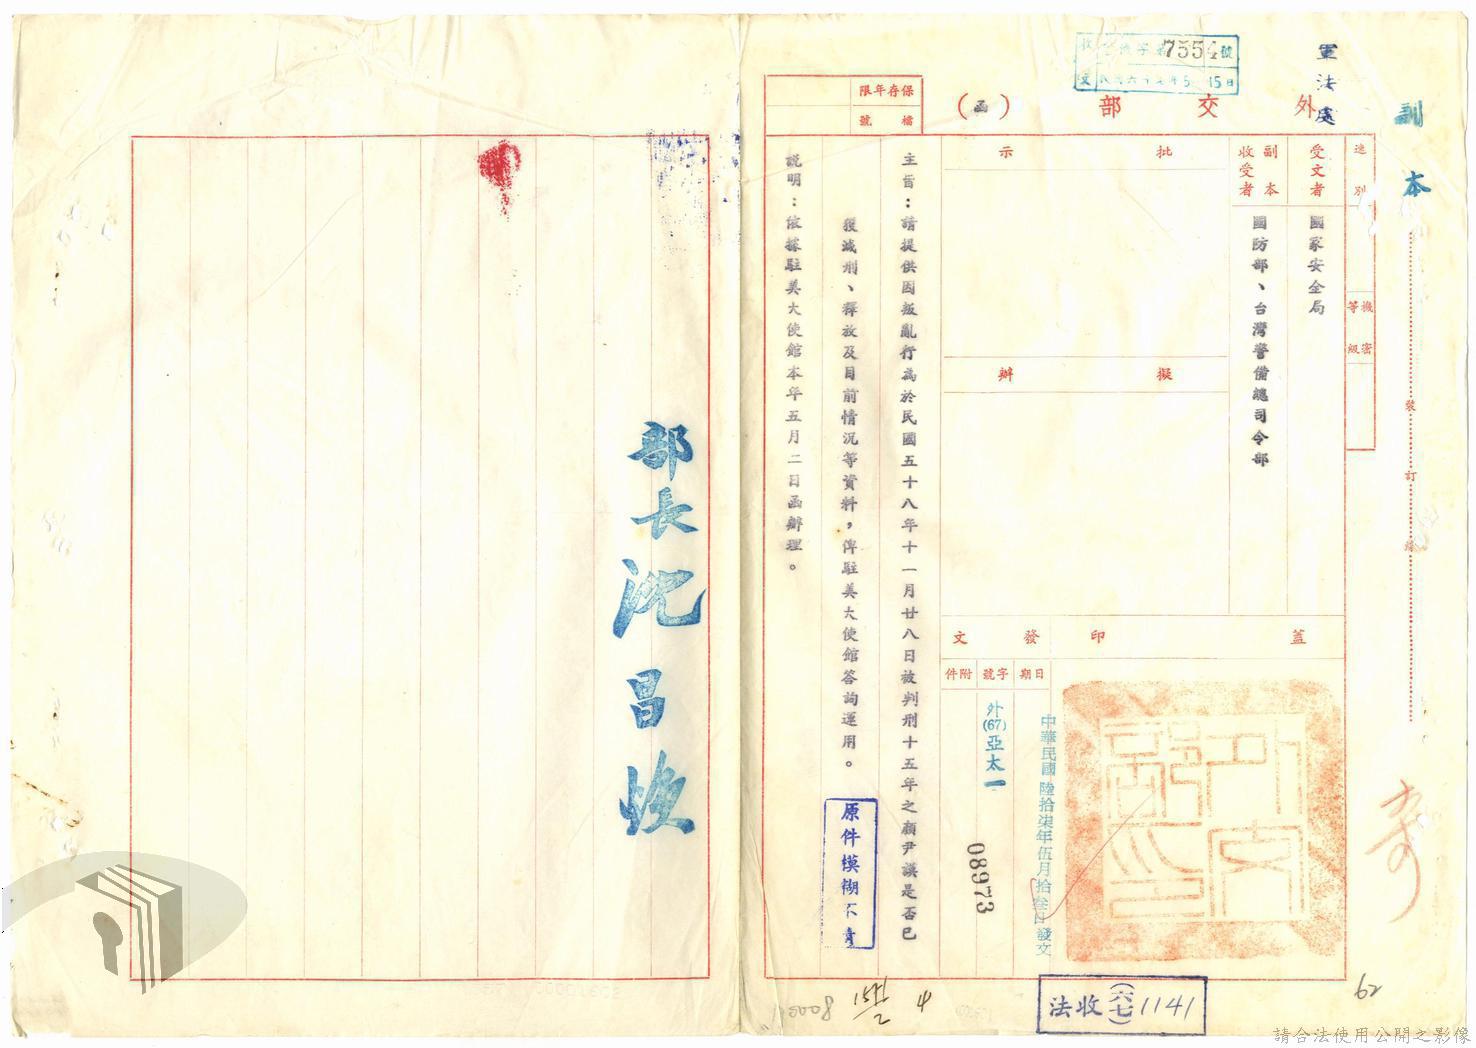 副本
軍法處
7554號
5 15日
外交部（函）
保存年限
檔號
速別
機密等級
受文者
國家安全局
副本收受者
國防部、台灣警備總司令部
批示
擬辦
蓋印
發文
日期
字號
附件
中華民國陸拾柒年伍月拾叁日發文
外(67)亞太一
08973
主旨：請提供因叛亂行為於民國五十八年十一月廿八日被判刑十五年之顏尹謨是否已
獲減刑、釋放及目前情況等資料，俾駐美大使館答詢運用。
說明：依據駐美大使館本年五月二日函辦理。
原件模糊不清
部長沈昌煥
裝訂線
法收(六七)1141
62
請合法使用公開之影像